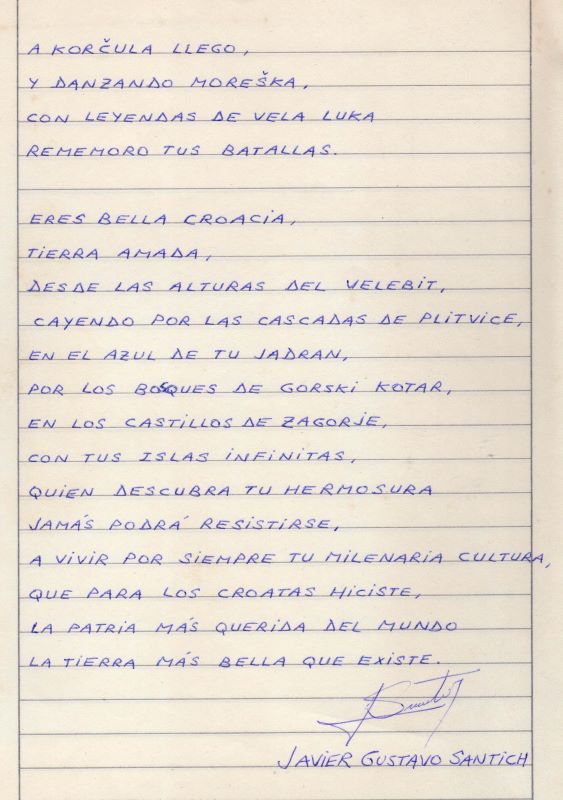 A KORČULA LLEGO,
Y DANZANDO MOREŠKA,
CON LEYENDAS DE VELA LUKA
REMEMORO TUS BATALLAS.
ERES BELLA CROACIA,
TIERRA AMADA,
DESDE LAS ALTURAS DEL VELEBIT,
CAYENDO POR LAS CASCADAS DE PLITVICE,
EN EL AZUL DE TU JADRAN,
POR LOS BOSQUES DE GORSKI KOTAR,
EN LOS CASTILLOS DE ZAGORJE,
CON TUS ISLAS INFINITAS,
QUIEN DESCUBRA TU HERMOSURA
JAMÁS PODRÁ RESISTIRSE,
A VIVIR POR SIEMPRE TU MILENARIA CULTURA,
QUE PARA LOS CROATAS HICISTE,
LA PATRIA MÁS QUERIDA DEL MUNDO
LA TIERRA MÁS BELLA QUE EXISTE.
JAVIER GUSTAVO SANTICH